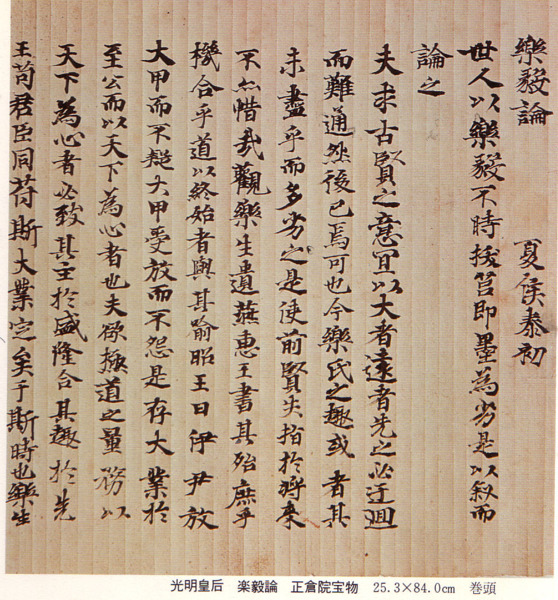 樂毅論 夏侯泰初
世人以樂毅不時拔莒即墨為劣是以叙而
論之
夫求古賢之意宜以大者遠者先之必迂迴
而難通然後已焉可也今樂氏之趣或者其
未盡乎而多劣之是使前賢失指於將來
不亦惜哉觀樂生遺燕惠王書其殆庶乎
機合乎道以終始者與其喻昭王曰伊尹放
大甲而不疑大甲受放而不怨是存大業於
至公而以天下為心者也夫欲極道之量務以
天下為心者必致其主於盛隆合其趣於先
王苟君臣同苻斯大業定矣于斯時也樂生
光明皇后 楽毅論 正倉院宝物 25.3×84.0cm 巻頭